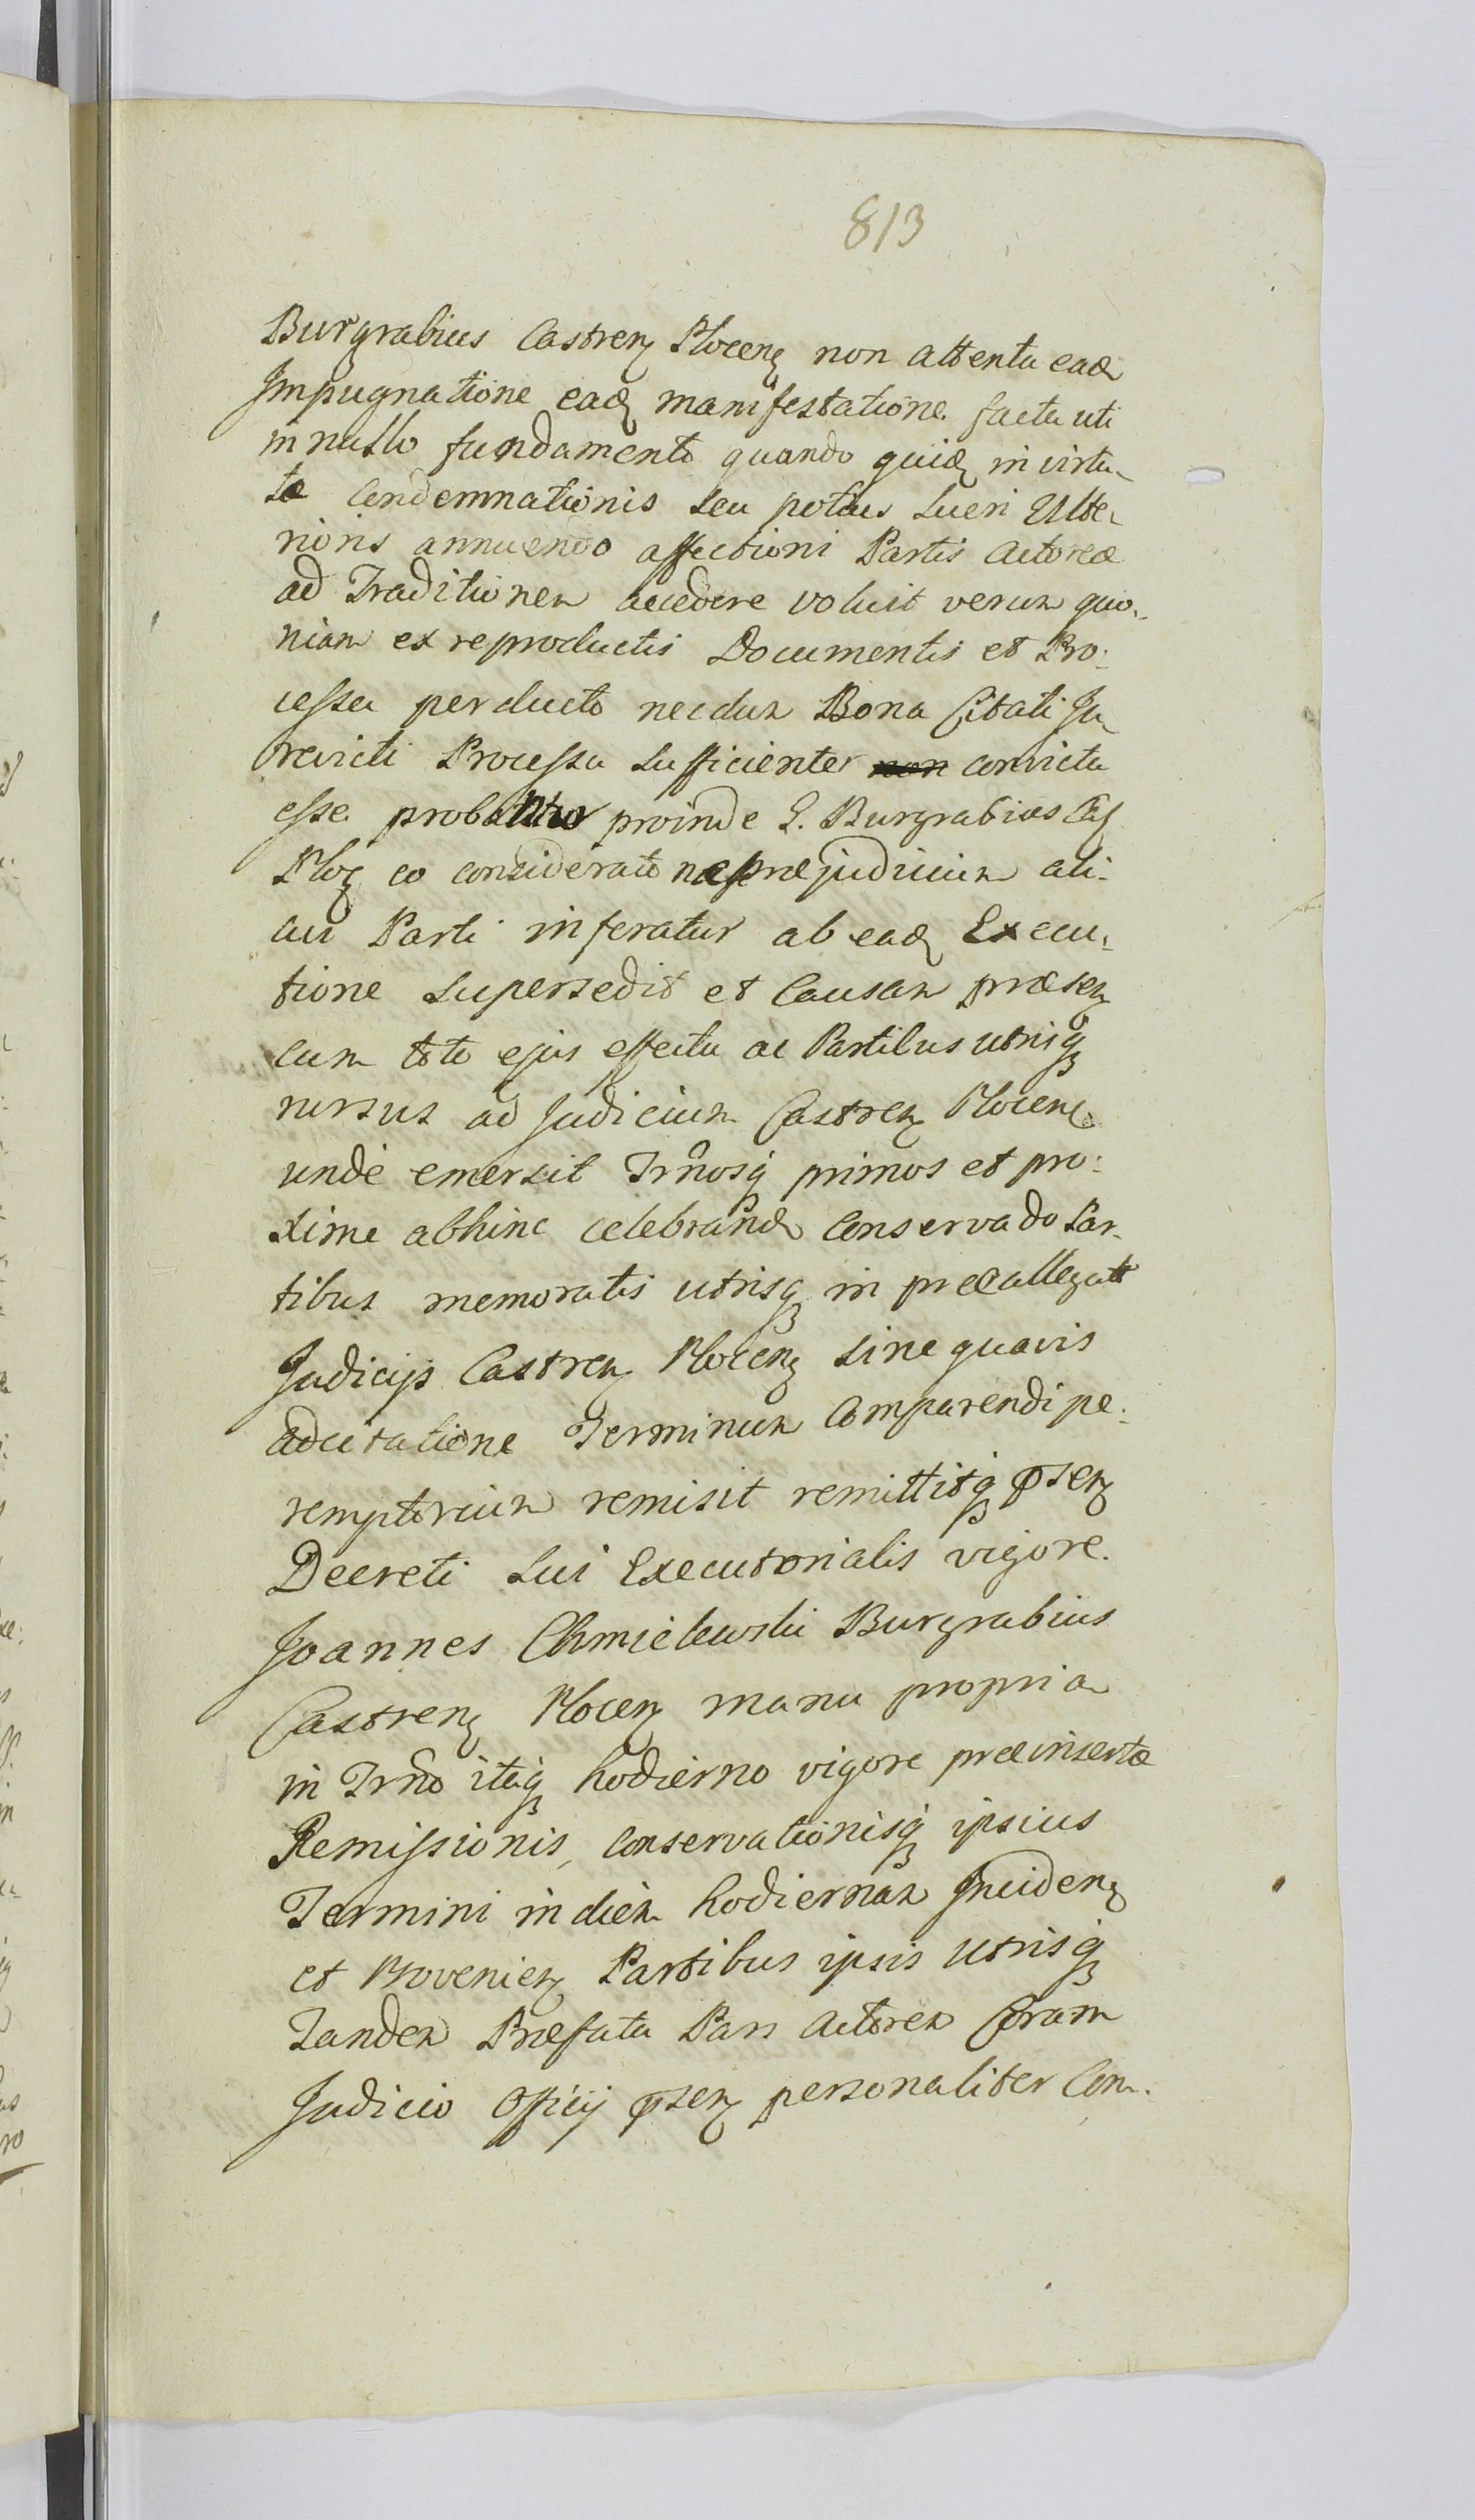 813
Burgrabius Castren Plocen non attenta ead
Impugnatione ead manifestatione facta uti
in nullo fundamento quando quid in virtu-
te Condemnationis seu potius Lucri Ulte-
rioris annuendo affectioni Partis Actoreæ
ad Traditionem accedere voluit verum quo-
niam ex reproductis Documentis et Pro-
cessu perducto necdum Bona Citati Ju-
revicti Processu sufficienter non convicta
esse probantur proinde G. Burgrabius Cas
Ploc eo considerato ne præjudicium ali-
cui Parti inferatur ab ead Execu-
tione supersedit et Causam præsen
cum toto ejus effectu ac Partibus utrisq
rursus ad Judicium Castren Plocen
unde emersit Trnosq primos et pro-
xime abhinc celebrand Conservado Par-
tibus memoratis utrisq in præallegat
Judicijs Castren Plocen sine quavis
adcitatione Terminum Comparendi pe-
remptorium remisit remittitq psen
Decreti sui Executorialis vigore.
Joannes Chmielewski Burgrabius
Castren Plocen manu propria
in Trno itaq hodierno vigore præinsertæ
Remissionis, conservationisq ipsius
Termini in diem hodiernam Inciden
et Provenien Partibus ipsis utrisq
Tandem Præfata Pars Actorea Coram
Judicio Officij psen personaliter Com-